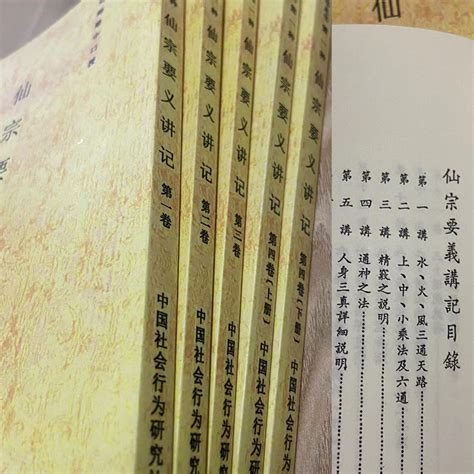 仙宗要
仙宗要义讲记 第一卷 中国社会行为研究
仙宗要义讲记 第二卷 中国社会行为研究
仙宗要义讲记 第三卷 中国社会行为研究
仙宗要义讲记 第四卷(上册) 中国社会行为研究
仙宗要义讲记 第四卷(下册) 中国社会行为研究
仙
仙宗要義講記目錄
第一講 水、火、風三通天路………
第二講 上、中、小乘法及六通
第三講 精竅之說明………………
第四講 通神之法…………………
第五講 人身三真詳細說明………